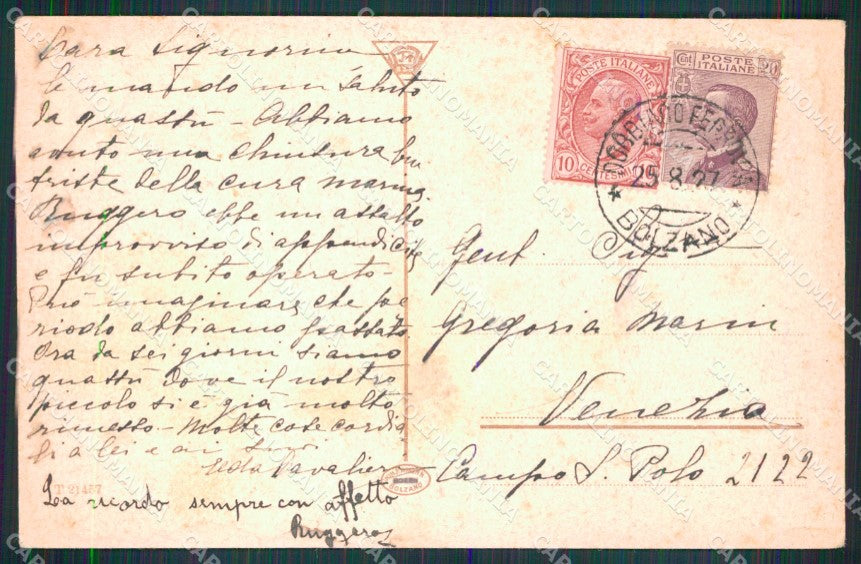 Cara Signorina
Le mando un saluto
da quassù - Abbiamo
avuto una chiusura ben
triste della cura marina.
Ruggero ebbe un assalto
improvviso di appendicite
e fu subito operato -
Può immaginare che pe
riodo abbiamo passato.
Ora da sei giorni siamo
quassù dove il nostro
piccolo si è già molto
rimesso - Molte cose cordia
li a lei e ai Suoi
Leda Cavalieri
La ricordo sempre con affetto
Ruggero
POSTE ITALIANE
10 CENTESIMI
Cent 20
POSTE
ITALIANE
25.8.27
BOLZANO
Gent. Sig.
Gregoria Marin
Venezia
Campo S. Polo 2122
BOLZANO
CARTOLINOMANIA